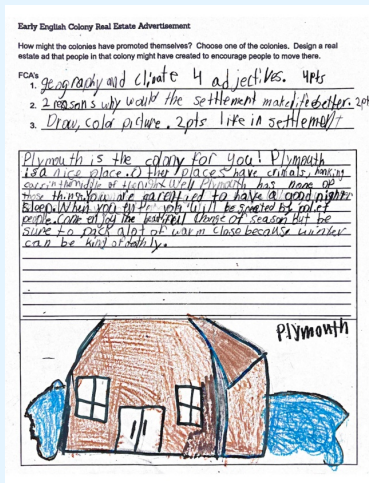 Early English Colony Real Estate Advertisement
How might the colonies have promoted themselves? Choose one of the colonies. Design a real
estate ad that people in that colony might have created to encourage people to move there.
FCA's
1. geography and climate 4 adjectives. 4pts
2. 2 reasons why would the settlement make life better. 2pt
3. Draw, color picture. 2pts life in settlement
Plymouth is the colony for you! Plymouth
is a nice place. Other places have criminals,
in the middle of Well Plymouth has none of
those things. You are to have a good night
sleep. When you enter you will be greeted by
people. Come enjoy the change of season but be
sure to pack alot of warm close because winter
can be kind of
Plymouth